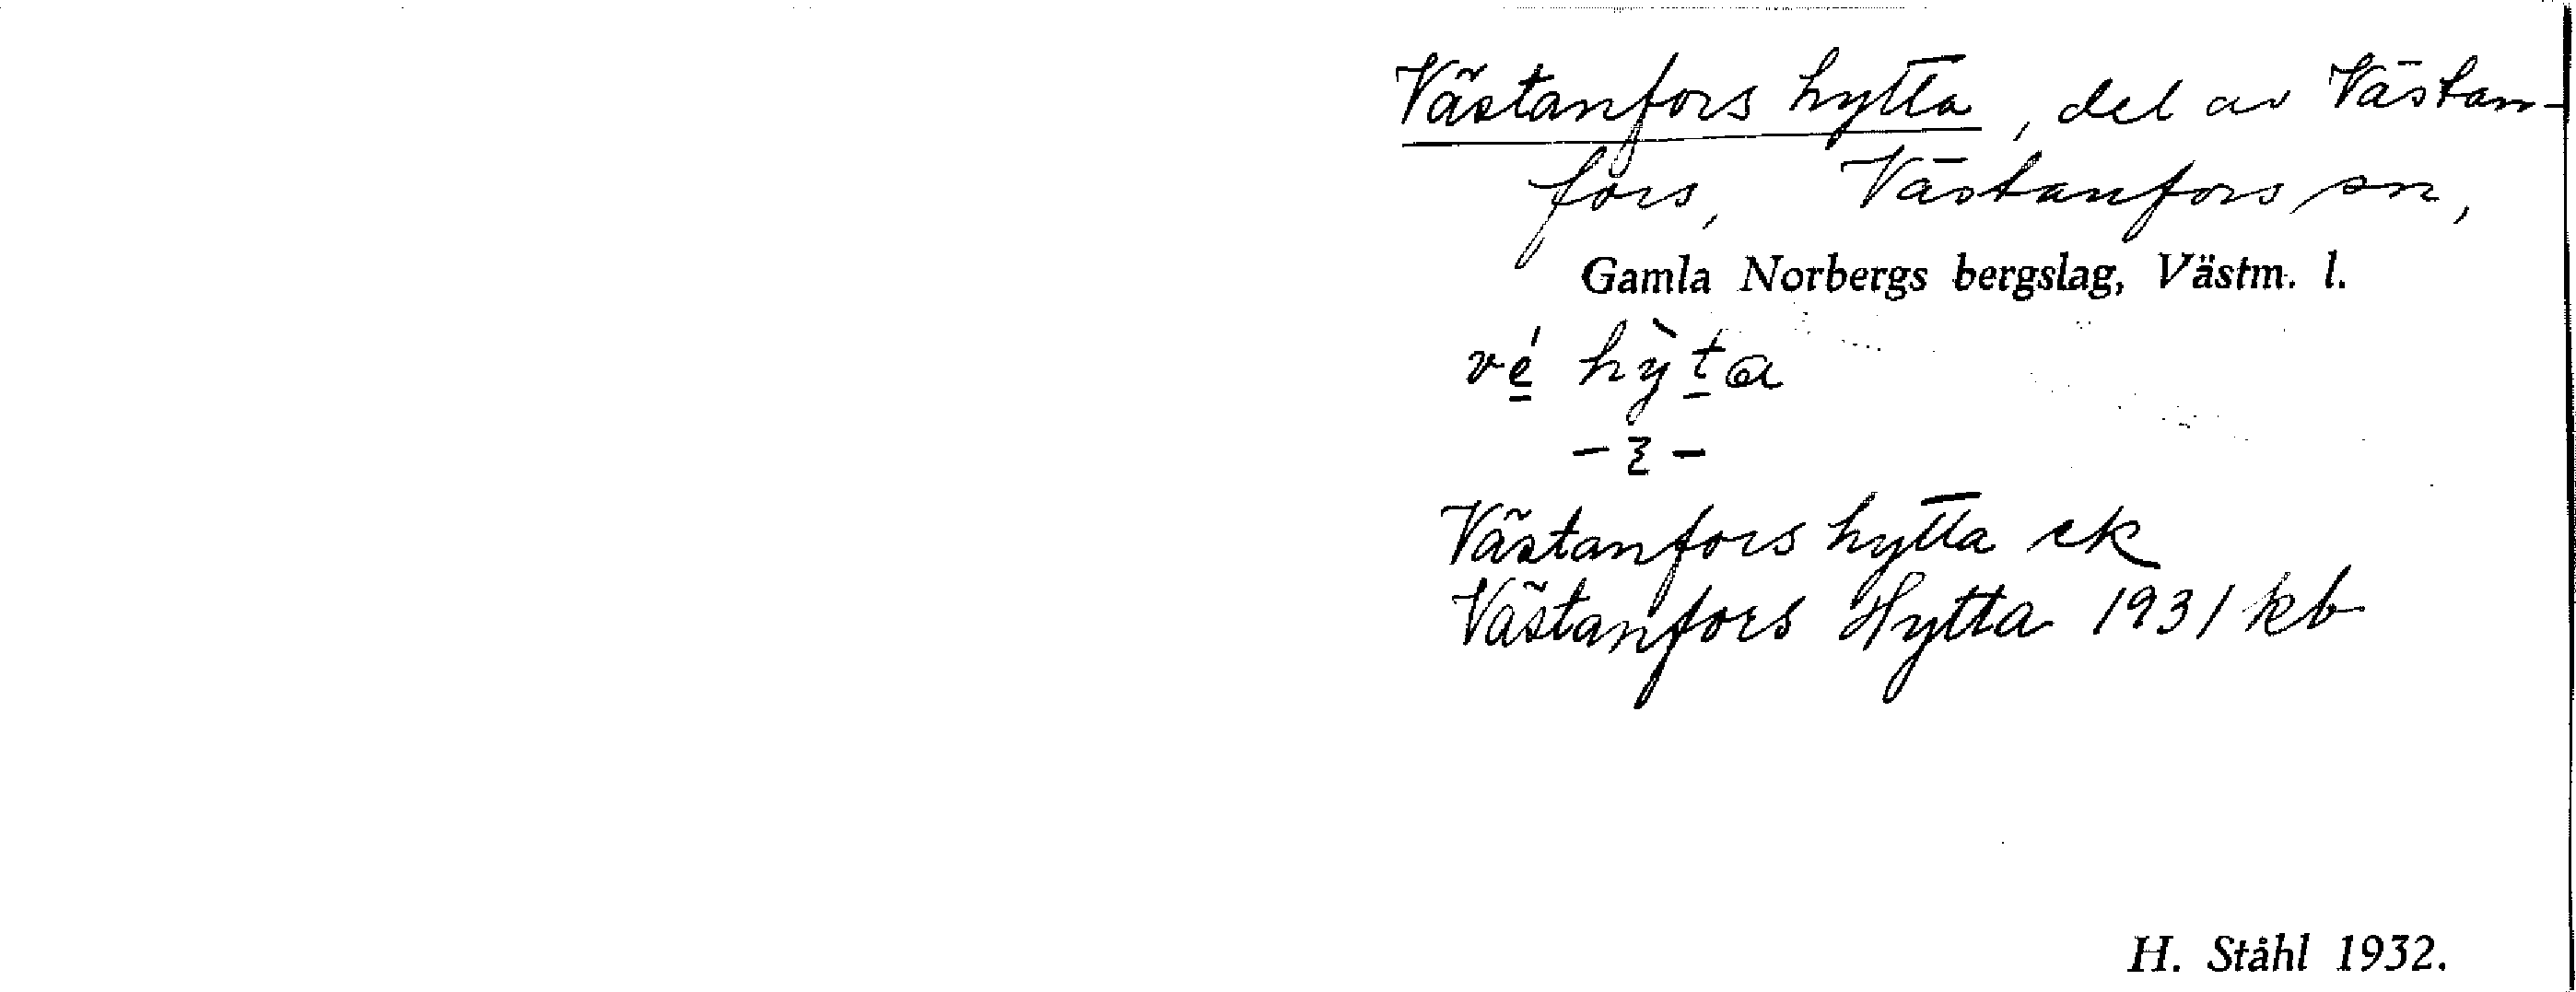 Västanfors hytta, del av Västan-
fors, Västanfors sn,
Gamla Norbergs bergslag, Västm. l.
vé hỳta
- ξ -
Västanfors hytta ek
Västanfors Hytta 1931 kb
H. Ståhl 1932.